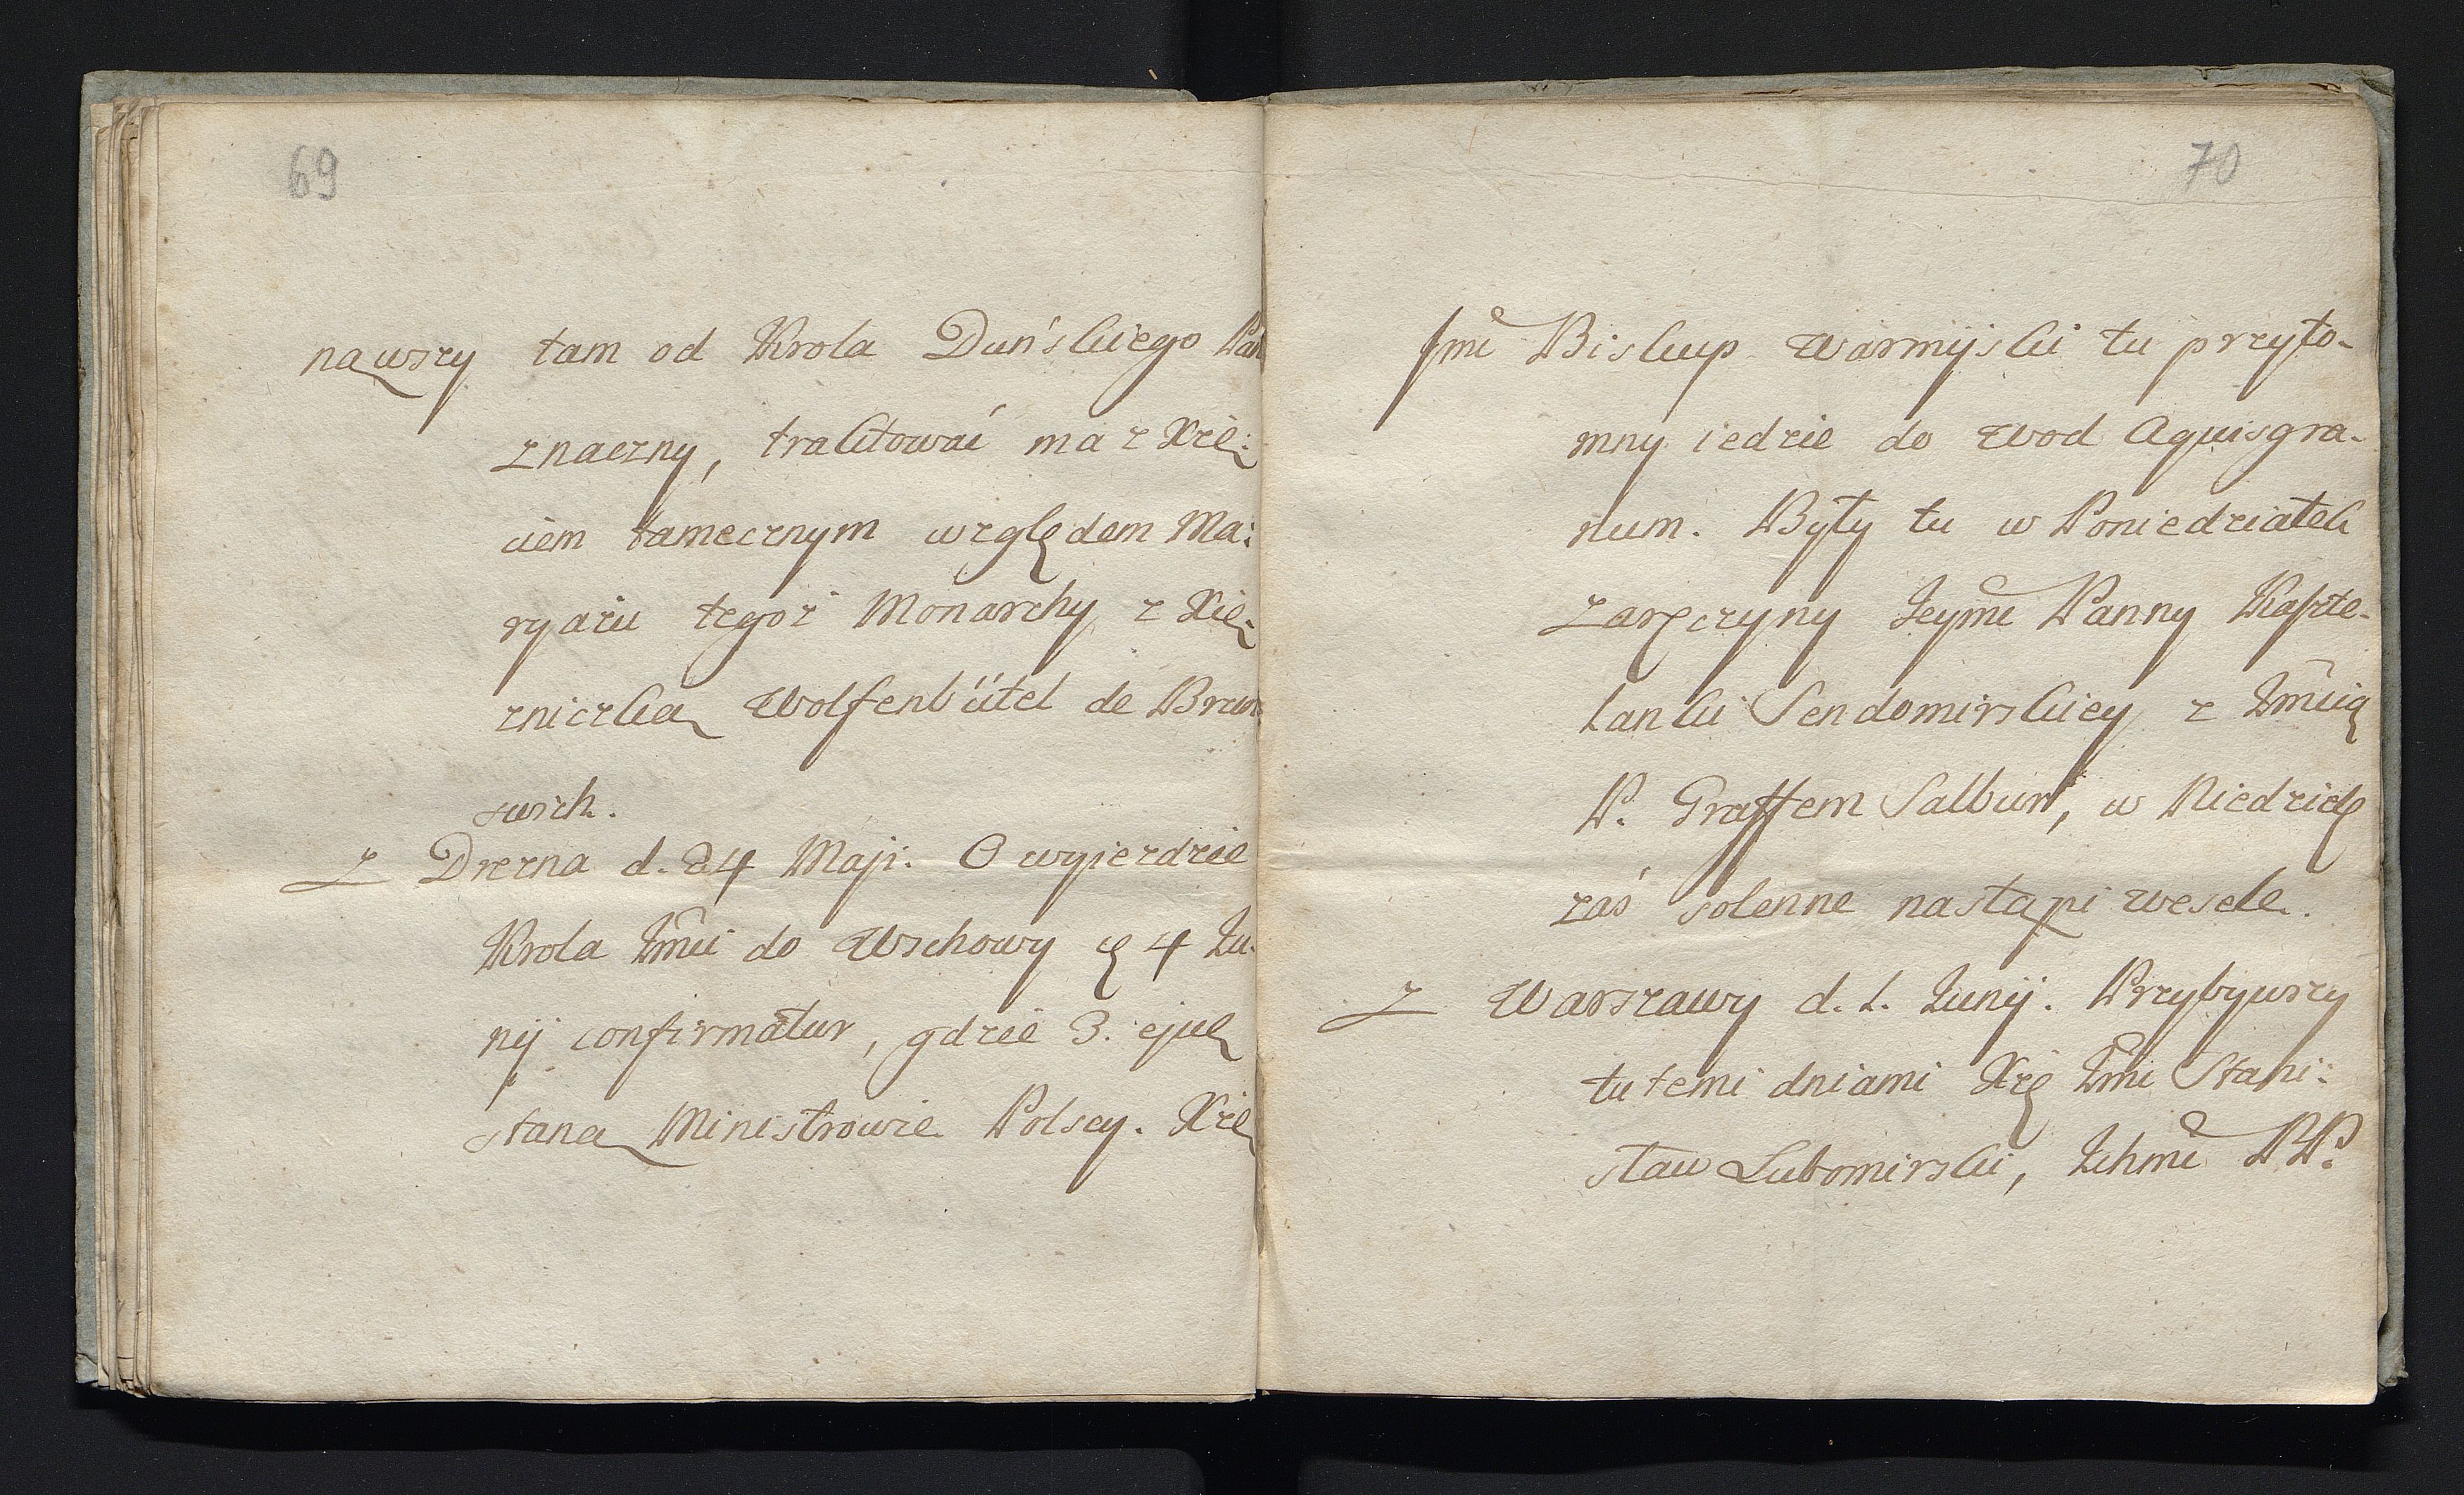 69
nąwszy tam od Krola Duńskiego Pan
znaczny, traktować ma z Xżę:
ciem tamecznym względem Ma:
ryażu tegoż Monarchy z Xię-
zniczką Wolfenbüttel de Brun
swich.
Z Drezna d. 24 Maji. O wyjezdzie
Krola Jmci do Wschowy ę 4 Ju-
nij confirmatur, gdzie 3. ejusd
staną Ministrowie Polscy. Xżę
70
Jmć Biskup Warmijski tu przyto-
mny iedzie do Wod Aquisgra-
num. Były tu w Poniedziałek
zaręczyny Jeymć Panny Kaszte-
lanki Sendomirskiey z Jmcią
P. Graffem Salbur, w Niedzielę
zaś solenne nastąpi wesele.
Z Warszawy d. 1. Junij. Przybywszy
tu temi dniami Xżę Jmć Stani:
sław Lubomirski, Ichmć PP.